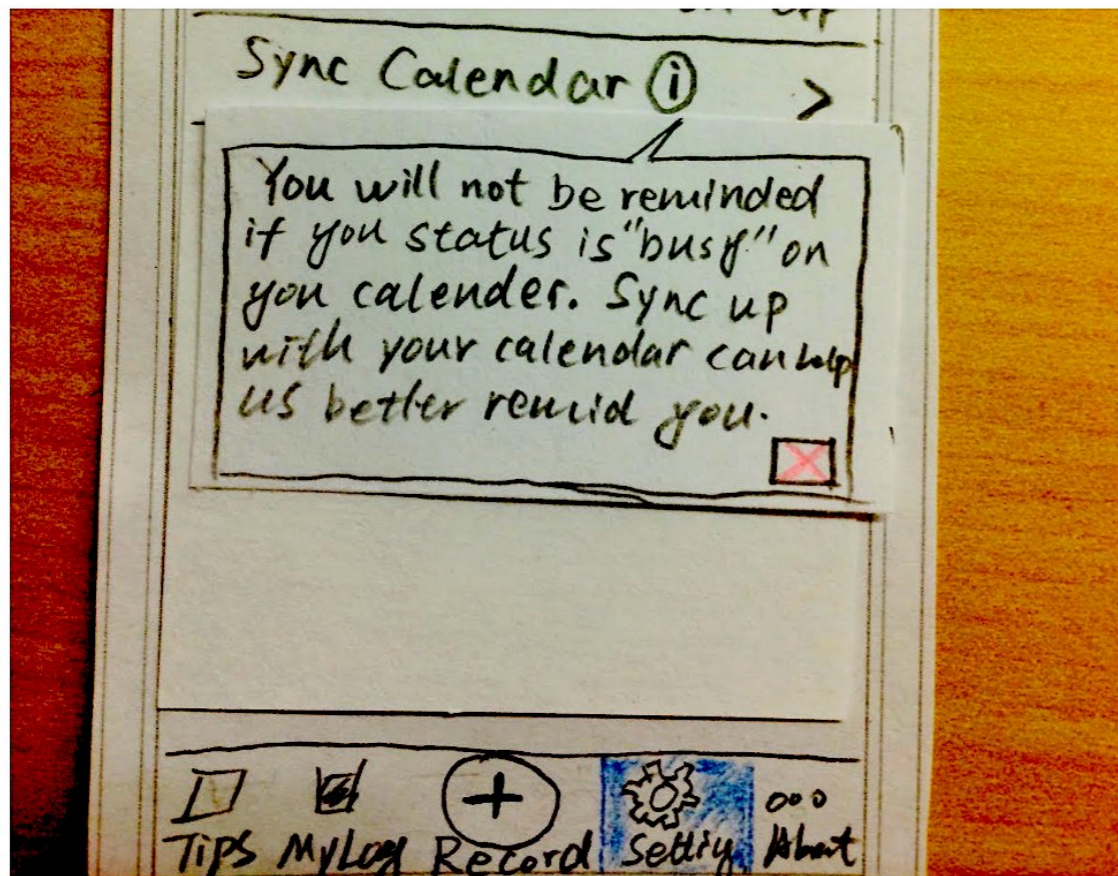 Sync Calendar i >
You will not be reminded
if you status is "busy" on
you calender. Sync up
with your calendar can help
us better remid you.
Tips MyLog Record Settiy About